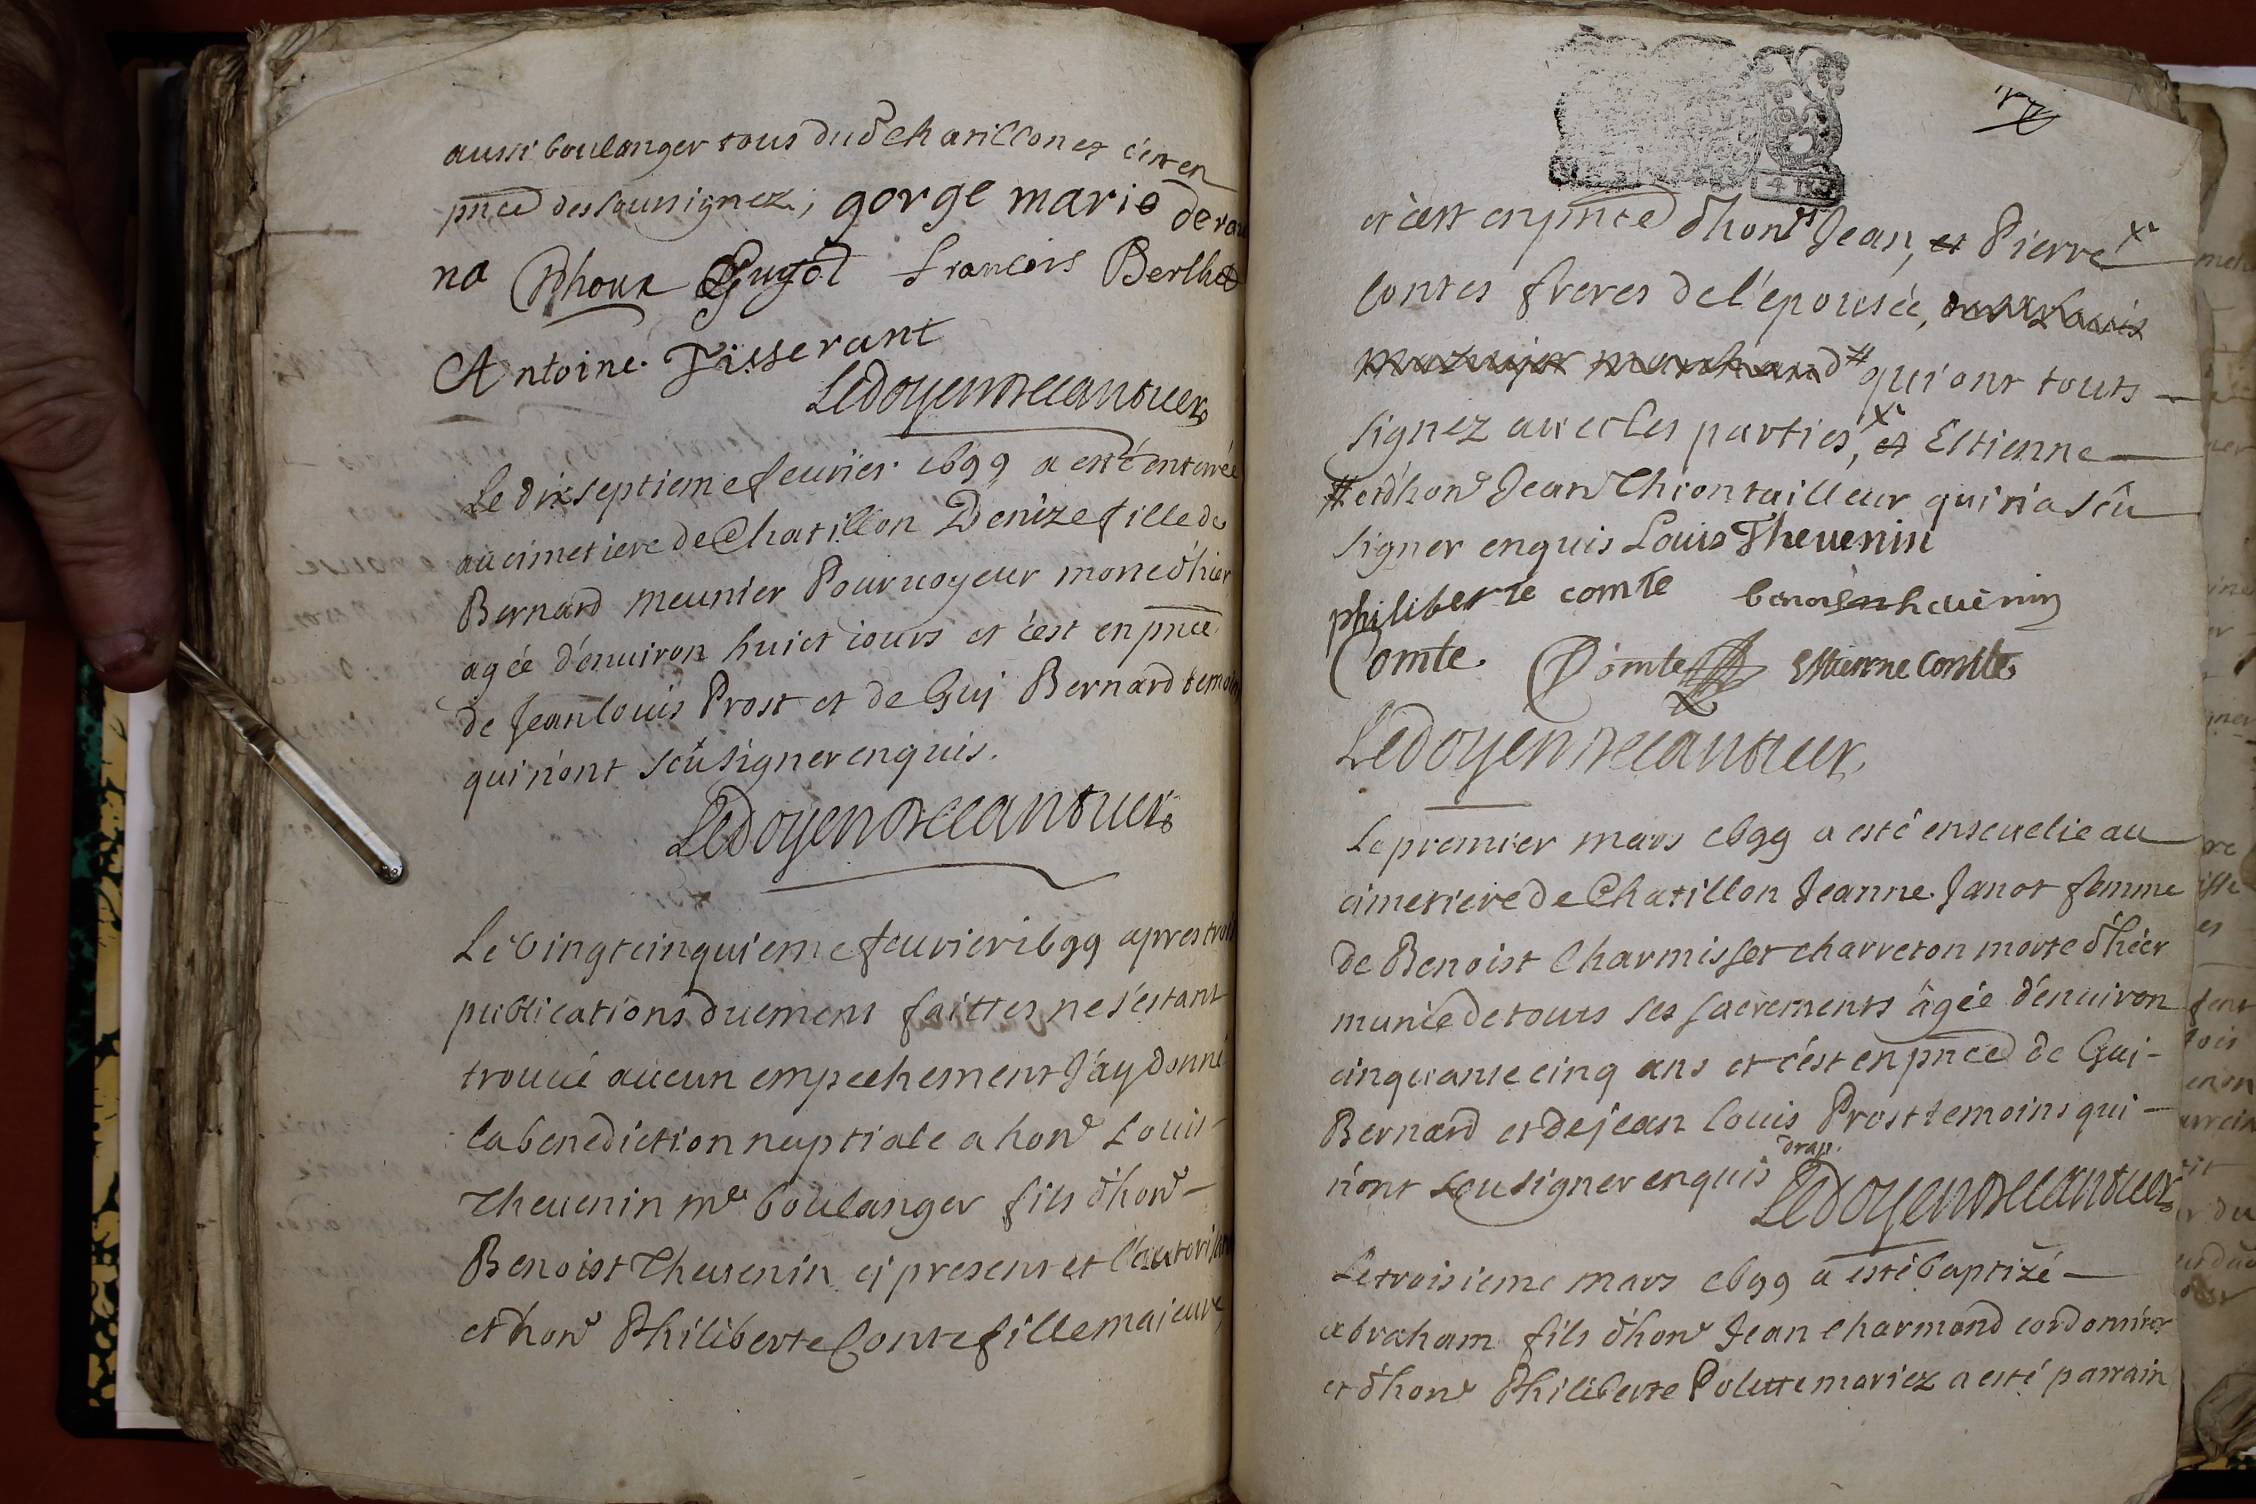 aussi boulanger tous dud Chatillon et c'est en
pnce des soussignez; gorge marie derau
na Guyot francois Berthet
Antoine Tisserant
Ledoyen de cantuer
Le dixseptieme feurier 1699 a esté enterrée
au cimetiere de Chatillon Denize fille de
Bernard meunier Pouruoyeur morte d'hier
agée d'enuiron huict iours et c'est en pnce
de Jean louis Prost et de Guy Bernard temoins
qui n'ont sceu signer enquis.
Ledoyen de cantuer
Le vingtcinquieme feurier 1699 apres trois
publications duement faittes ne s'estant
trouué aucun empechement J'ay donné
la benediction nuptiale a hone Louis
Theuenin me boulanger fils d'hone
Benoist Theuenin cy present et l'autorisant
et hone Philiberte Conte fille majeure,
et c'est en pnce d'hons Jean, et Pierre x
Contes freres de l'épousée,
marchand # qui ont touts
signez auec les parties, x et Estienne
# et d'hone Jean Thion tailleur qui n'a sçû
signer enquis Louis Theuenin
philiberte comte benoist theuenin
Comte. Comte Estienne Comte
Ledoyen de cantuer
Le premier mars 1699 a esté enseuelie au
cimetiere de Chatillon Jeanne Janot femme
de Benoist Charmisset charreton morte d'hier
munie de touts ses sacrements âgée d'enuiron
cinquante cinq ans et c'est en pnce de Gui
Bernard et de jean louis Prost temoins qui
n'ont sceu signer enquis drap.
Ledoyen de cantuer
Le troisieme mars 1699 a esté baptizé
abraham fils d'hone Jean Charmond cordonnier
et d'hone Philiberte Polette mariez a esté parrain